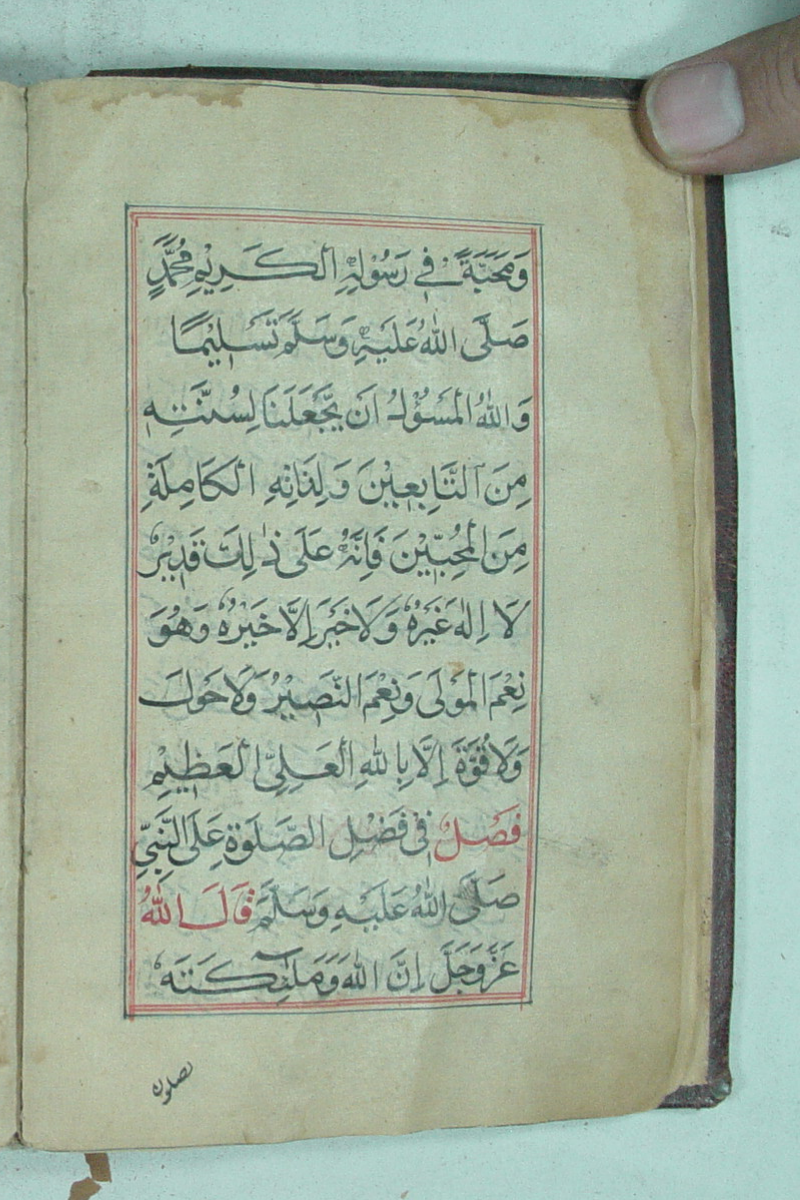 وَمَحَبَّةً فِي رَسُوْلِهِ الْكَرِيْمِ مُحَمَّدٍ
صَلَّى اللهُ عَلَيْهِ وَسَلَّمَ تَسْلِيْمًا
وَاللهُ الْمَسْؤُلُ اَنْ يَّجْعَلَنَا لِسُنَّتِهٖ
مِنَ التَّابِعِيْنَ وَلِذَاتِهِ الْكَامِلَةِ
مِنَ الْمُحِبِّيْنَ فَاِنَّهٗ عَلَى ذٰلِكَ قَدِيْرٌ
لَا اِلٰهَ غَيْرُهٗ وَلَا خَيْرَ اِلَّا خَيْرُهٗ وَهُوَ
نِعْمَ الْمَوْلَى وَنِعْمَ النَّصِيْرُ وَلَا حَوْلَ
وَلَا قُوَّةَ اِلَّا بِاللهِ الْعَلِيِّ الْعَظِيْمِ
فَصْلٌ فِي فَضْلِ الصَّلَوةِ عَلَى النَّبِيِّ
صَلَّى اللهُ عَلَيْهِ وَسَلَّمَ قَالَ اللهُ
عَزَّ وَجَلَّ اِنَّ اللهَ وَمَلٰٓئِكَتَهٗ
يصلون